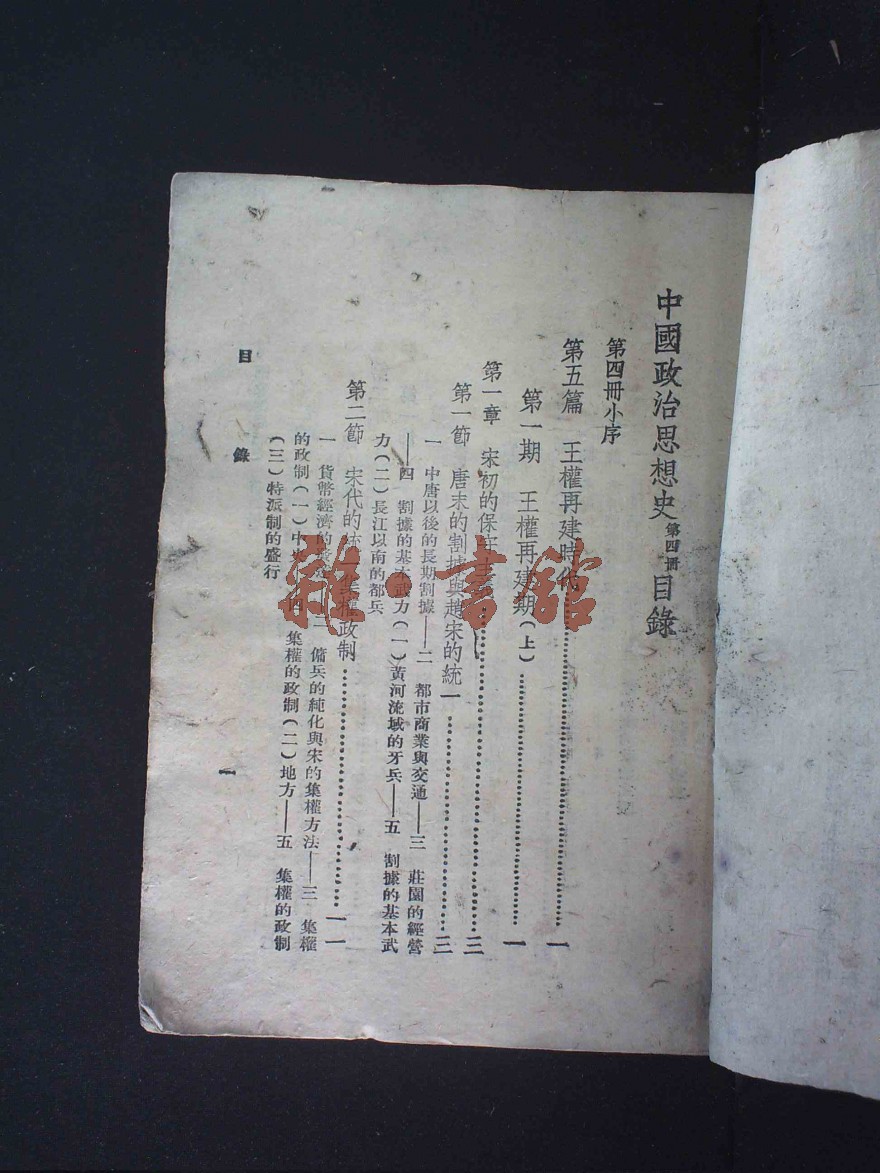 中國政治思想史 第四冊 目錄
第四冊小序
第五篇 王權再建時代……一
第一期 王權再建期(上)……一
第一章 宋初的保守主義……三
第一節 唐末的割據與趙宋的統一……三
一 中唐以後的長期割據——二 都市商業與交通——三 莊園的經營
——四 割據的基本武力(一)黃河流域的牙兵——五 割據的基本武
力(二)長江以南的都兵
第二節 宋代的統 集權政制……一一
一 貨幣經濟的發 二 傭兵的純化與宋的集權方法——三 集權
的政制(一)中央 四 集權的政制(二)地方——五 集權的政制
(三)特派制的盛行
目錄
一
雜·書館